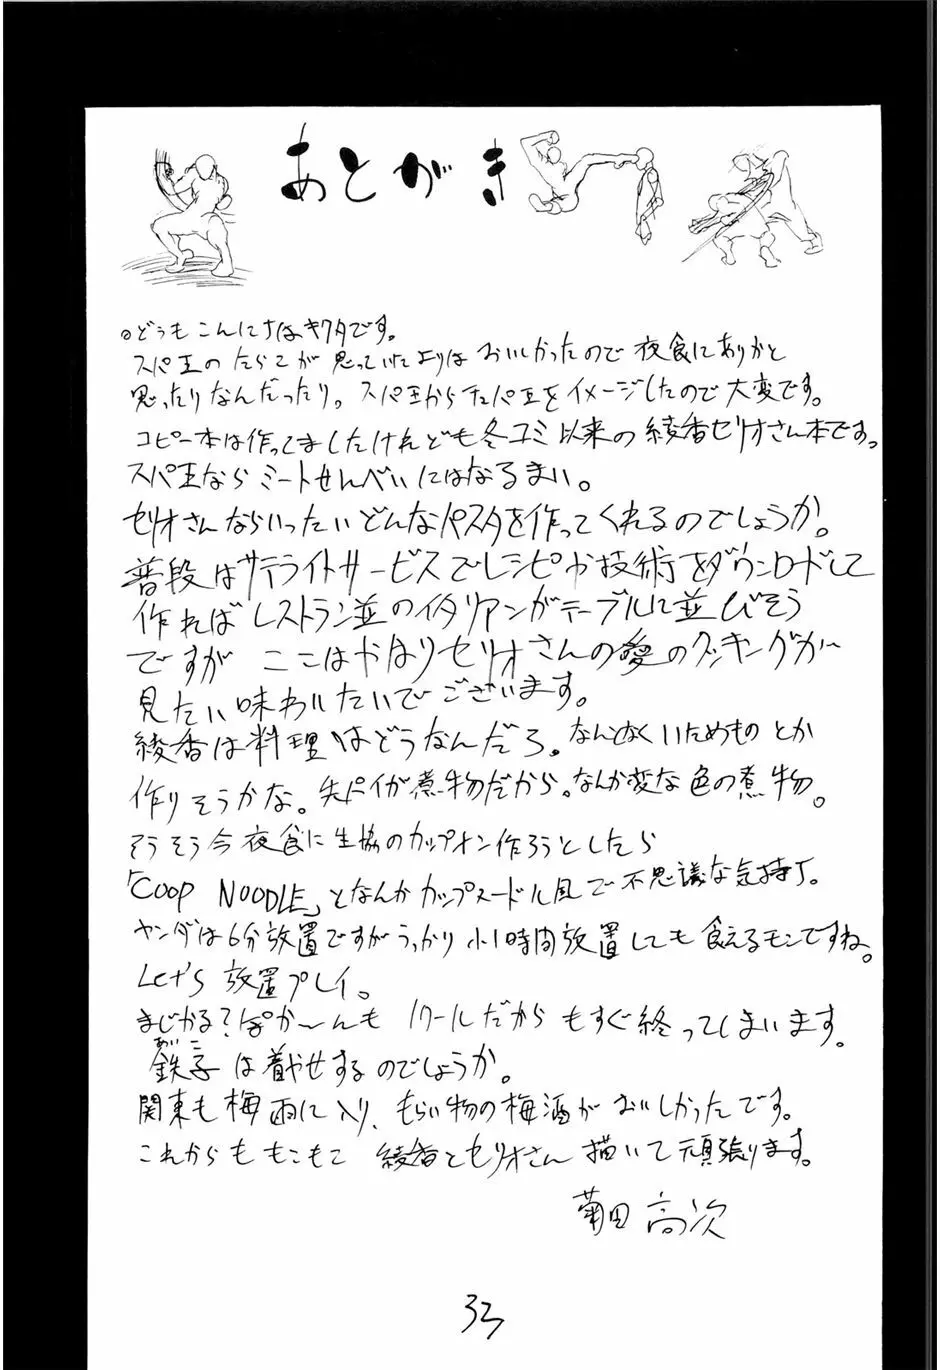 あとがき
○どうもこんにちはキクタです。
スパ王のたらこが思っていたよりはおいしかったので夜食にありかと
思ったりなんだったり。スパ王からをイメージしたので大変です。
コピー本は作ってましたけれども冬コミ以来の綾香セリオさん本です。
スパ王ならミートせんべいにはなるまい。
セリオさんならいったいどんなパスタを作ってくれるのでしょうか。
普段はサテライトサービスでレシピや技術をダウンロードして
作ればレストラン並のイタリアンがテーブルに並びそう
ですが ここはやはりセリオさんの愛のクッキングが
見たい味わいたいでございます。
綾香は料理はどうなんだろ。なんとなくいためものとか
作りそうかな。先パイが煮物だから。なんか変な色の煮物。
そうそう今夜食に生協のカップメン作ろうとしたら
「COOP NOODLE」となんかカップヌードル風で不思議な気持ち。
ヤンダは6分放置ですがうっかり小1時間放置しても食えるモンですね。
Let's 放置プレイ。
まじかる?ぽか〜んも 1クールだからもすぐ終ってしまいます。
鉄子は着やせするのでしょうか。
関東も梅雨に入り、もらい物の梅酒がおいしかったです。
これからももこもこ 綾香とセリオさん描いて頑張ります。
菊田 高次
33